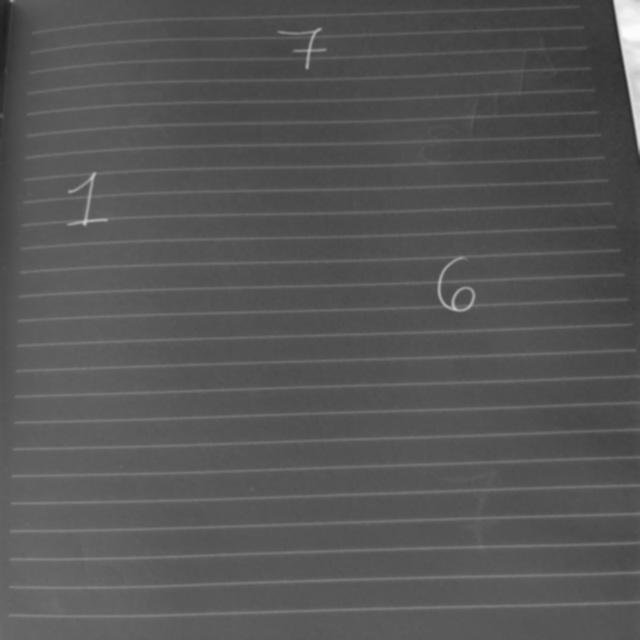 7
1
6